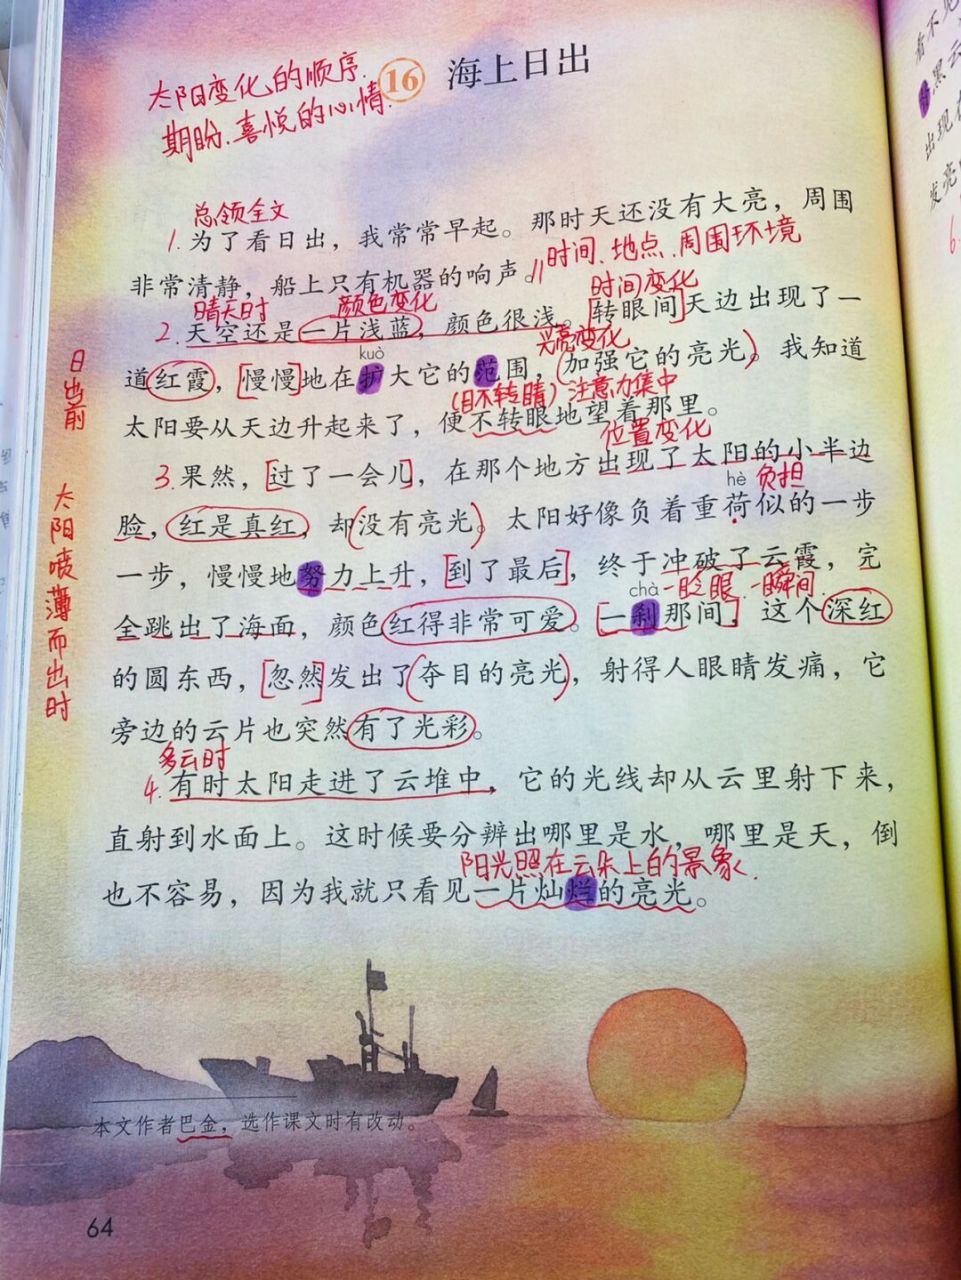 太阳变化的顺序.
期盼.喜悦的心情.
16 海上日出
总领全文
1.为了看日出，我常常早起。那时天还没有大亮，周围
非常清静，船上只有机器的响声。//时间、地点、周围环境
晴天时 颜色变化 时间变化
2.天空还是一片浅蓝，颜色很浅。[转眼间]天边出现了一
kuò 光亮变化
道红霞，[慢慢]地在扩大它的范围，(加强它的亮光)。我知道
(目不转睛)注意力集中
太阳要从天边升起来了，便不转眼地望着那里。
位置变化
3.果然，[过了一会儿]，在那个地方出现了太阳的小半边
hè 负担
脸，红是真红，却(没有亮光)。太阳好像负着重荷似的一步
一步，慢慢地努力上升，[到了最后]，终于冲破了云霞，完
chà 一眨眼.一瞬间.
全跳出了海面，颜色红得非常可爱。[一刹那间]，这个深红
的圆东西，[忽然]发出了(夺目的亮光)，射得人眼睛发痛，它
旁边的云片也突然有了光彩。
多云时
4.有时太阳走进了云堆中，它的光线却从云里射下来，
直射到水面上。这时候要分辨出哪里是水，哪里是天，倒
阳光照在云朵上的景象.
也不容易，因为我就只看见一片灿烂的亮光。
日出前
太阳喷薄而出时
本文作者巴金，选作课文时有改动。
64
看不见
黑云
出现在
发亮
6.